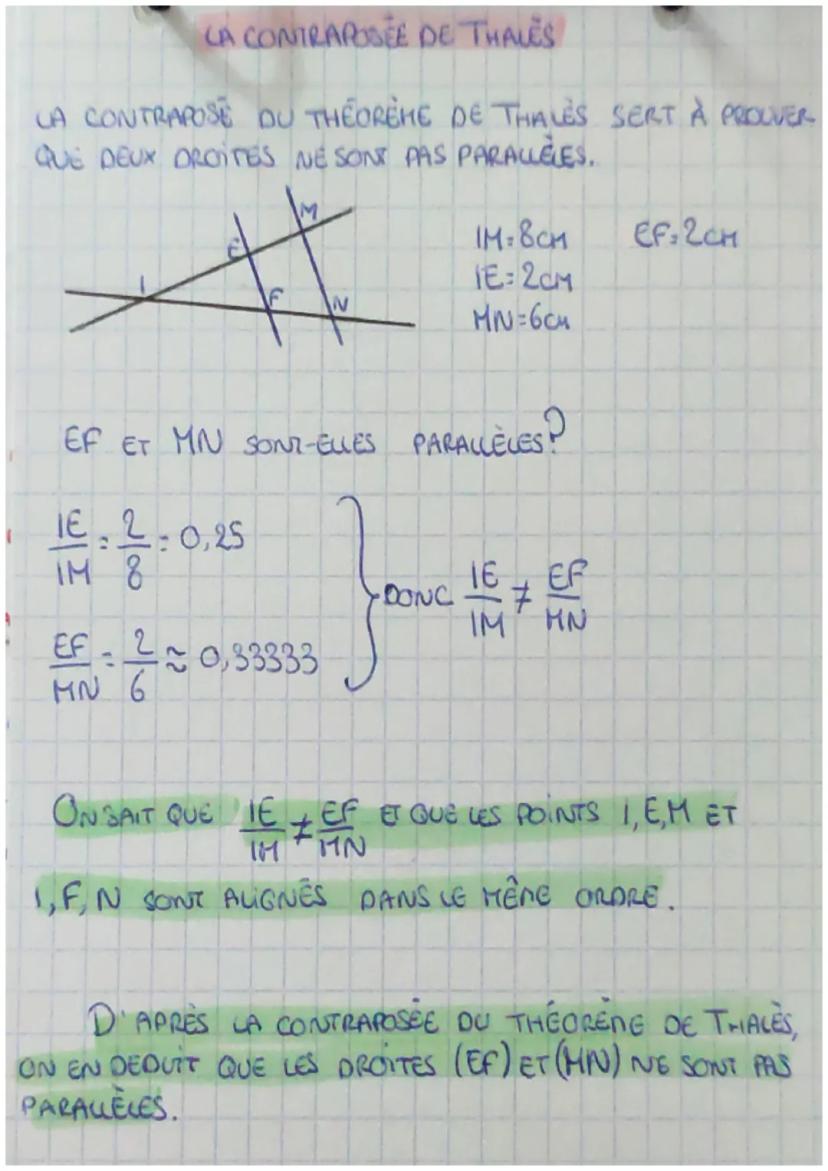 LA CONTRAPOSÉE DE THALÈS
LA CONTRAPOSÉ DU THÉORÈME DE THALÈS SERT À PROUVER
QUE DEUX DROITES NE SONT PAS PARALLÈLES.
M
E
I
F
N
IM=8CM EF=2CM
IE=2CM
MN=6CM
EF ET MN SONT-ELLES PARALLÈLES?
IE/IM = 2/8 = 0,25
DONC IE/IM ≠ EF/MN
EF/MN = 2/6 ≈ 0,33333
ON SAIT QUE IE/IM ≠ EF/MN ET QUE LES POINTS I,E,M ET
I,F,N SONT ALIGNÉS DANS LE MÊME ORDRE.
D'APRÈS LA CONTRAPOSÉE DU THÉORÈME DE THALÈS,
ON EN DEDUIT QUE LES DROITES (EF) ET (MN) NE SONT PAS
PARALLÈLES.